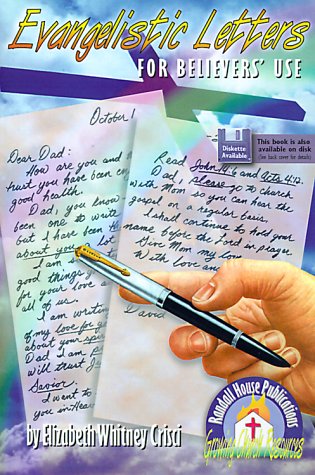 Evangelistic Letters
FOR BELIEVERS' USE
Diskette
Available
This book is also
available on disk
(See back cover for details)
October 1
Dear Dad:
How are you and
trust you have been en
good health.
Dad, you know
been one to write
but I have been
about you lot
I am
good things
for your love
all of us.
I am writing
of my love for
about your
Dad I am
will trust
Savior.
I want to
you in Hea
Read John 14:6 and Acts 4:12.
Dad, please go to church
with Mom so you can hear the
gospel on a regular basis.
I shall continue to hold your
name before the Lord in prayer.
Give Mom my love
With love and
David
by Elizabeth Whitney Crisci
Randall House Publications
Growing Church Resources